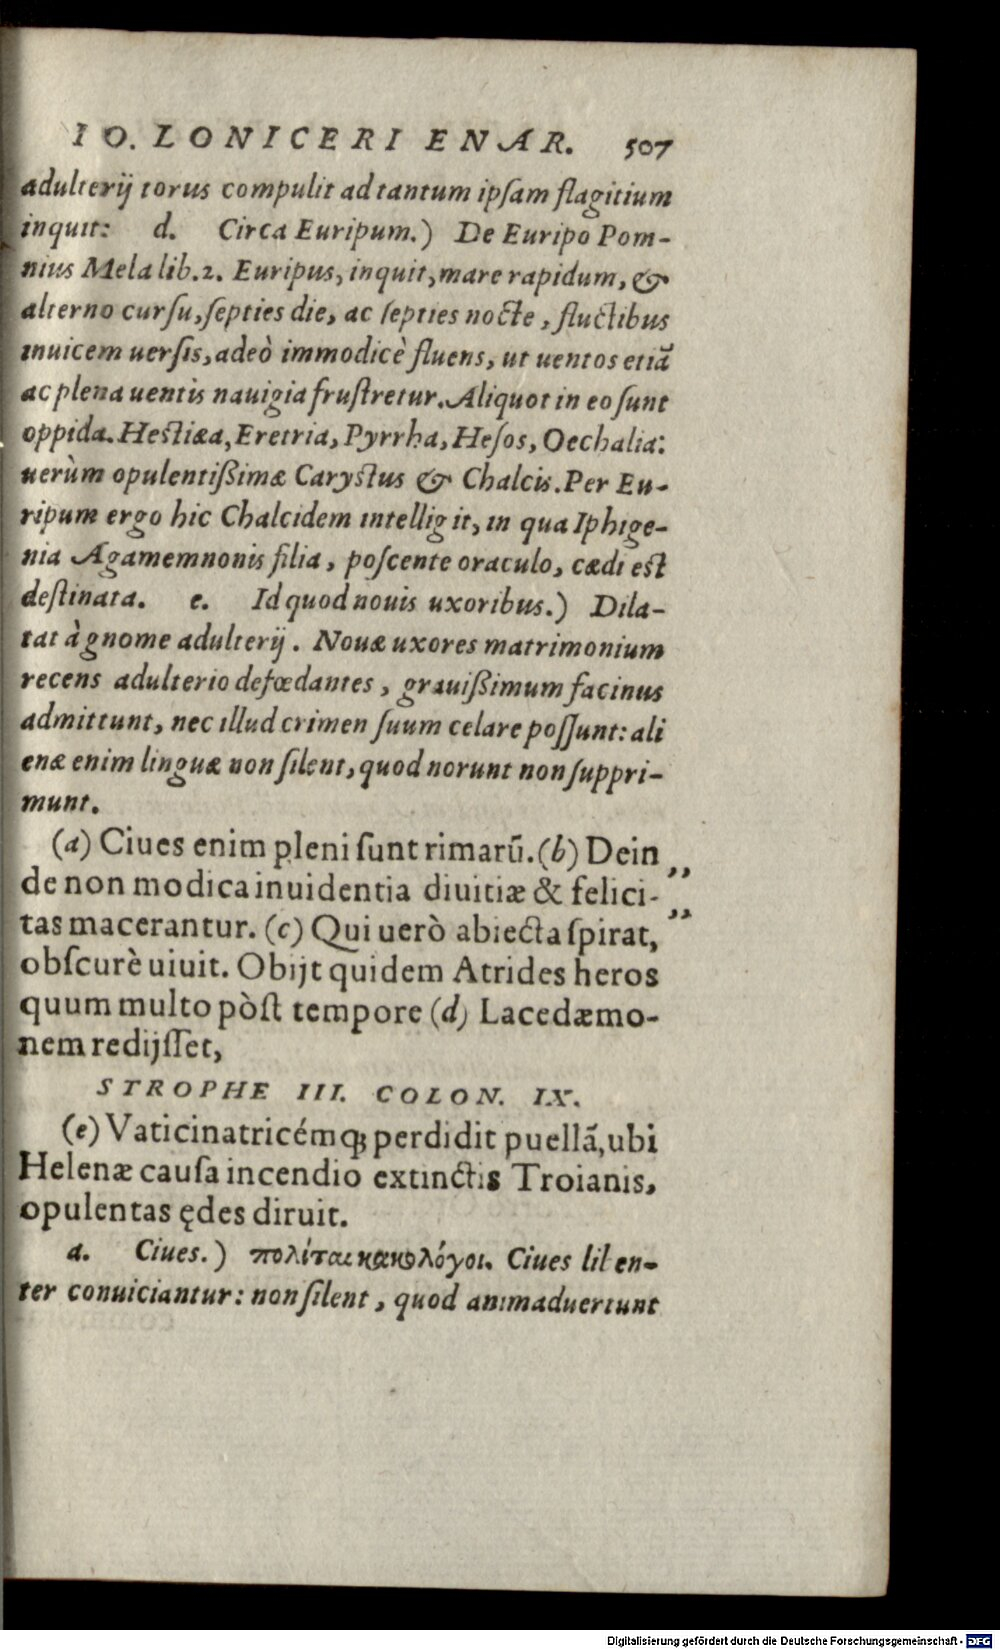 IO. LONICERI ENAR. 507
adulterij torus compulit ad tantum ipsam flagitium
inquit: d. Circa Euripum.) De Euripo Pom-
nius Mela lib.2. Euripus, inquit, mare rapidum, &
alterno cursu, septies die, ac septies nocte, fluctibus
inuicem uersis, adeò immodicè fluens, ut uentos etiã
ac plena uentis nauigia frustretur. Aliquot in eo sunt
oppida. Hestiæa, Eretria, Pyrrha, Hesos, Oechalia:
uerùm opulentißimæ Carystus & Chalcis. Per Eu-
ripum ergo hic Chalcidem intelligit, in qua Iphige-
nia Agamemnonis filia, poscente oraculo, cædi est
destinata. e. Id quod nouis uxoribus.) Dila-
tat à gnome adulterij. Nouæ uxores matrimonium
recens adulterio defœdantes, grauißimum facinus
admittunt, nec illud crimen suum celare possunt: ali
enæ enim linguæ non silent, quod norunt non suppri-
munt.
(a) Ciues enim pleni sunt rimarũ. (b) Dein ,,
de non modica inuidentia diuitiæ & felici-
tas macerantur. (c) Qui uerò abiecta spirat, ,,
obscurè uiuit. Obijt quidem Atrides heros
quum multo pòst tempore (d) Lacedæmo-
nem redijsset,
STROPHE III. COLON. IX.
(e) Vaticinatricémq; perdidit puellã, ubi
Helenæ causa incendio extinctis Troianis,
opulentas ędes diruit.
a. Ciues.) πολίται κακολόγοι. Ciues liben-
ter conuiciantur: non silent, quod animaduertunt
Digitalisierung gefördert durch die Deutsche Forschungsgemeinschaft - DFG